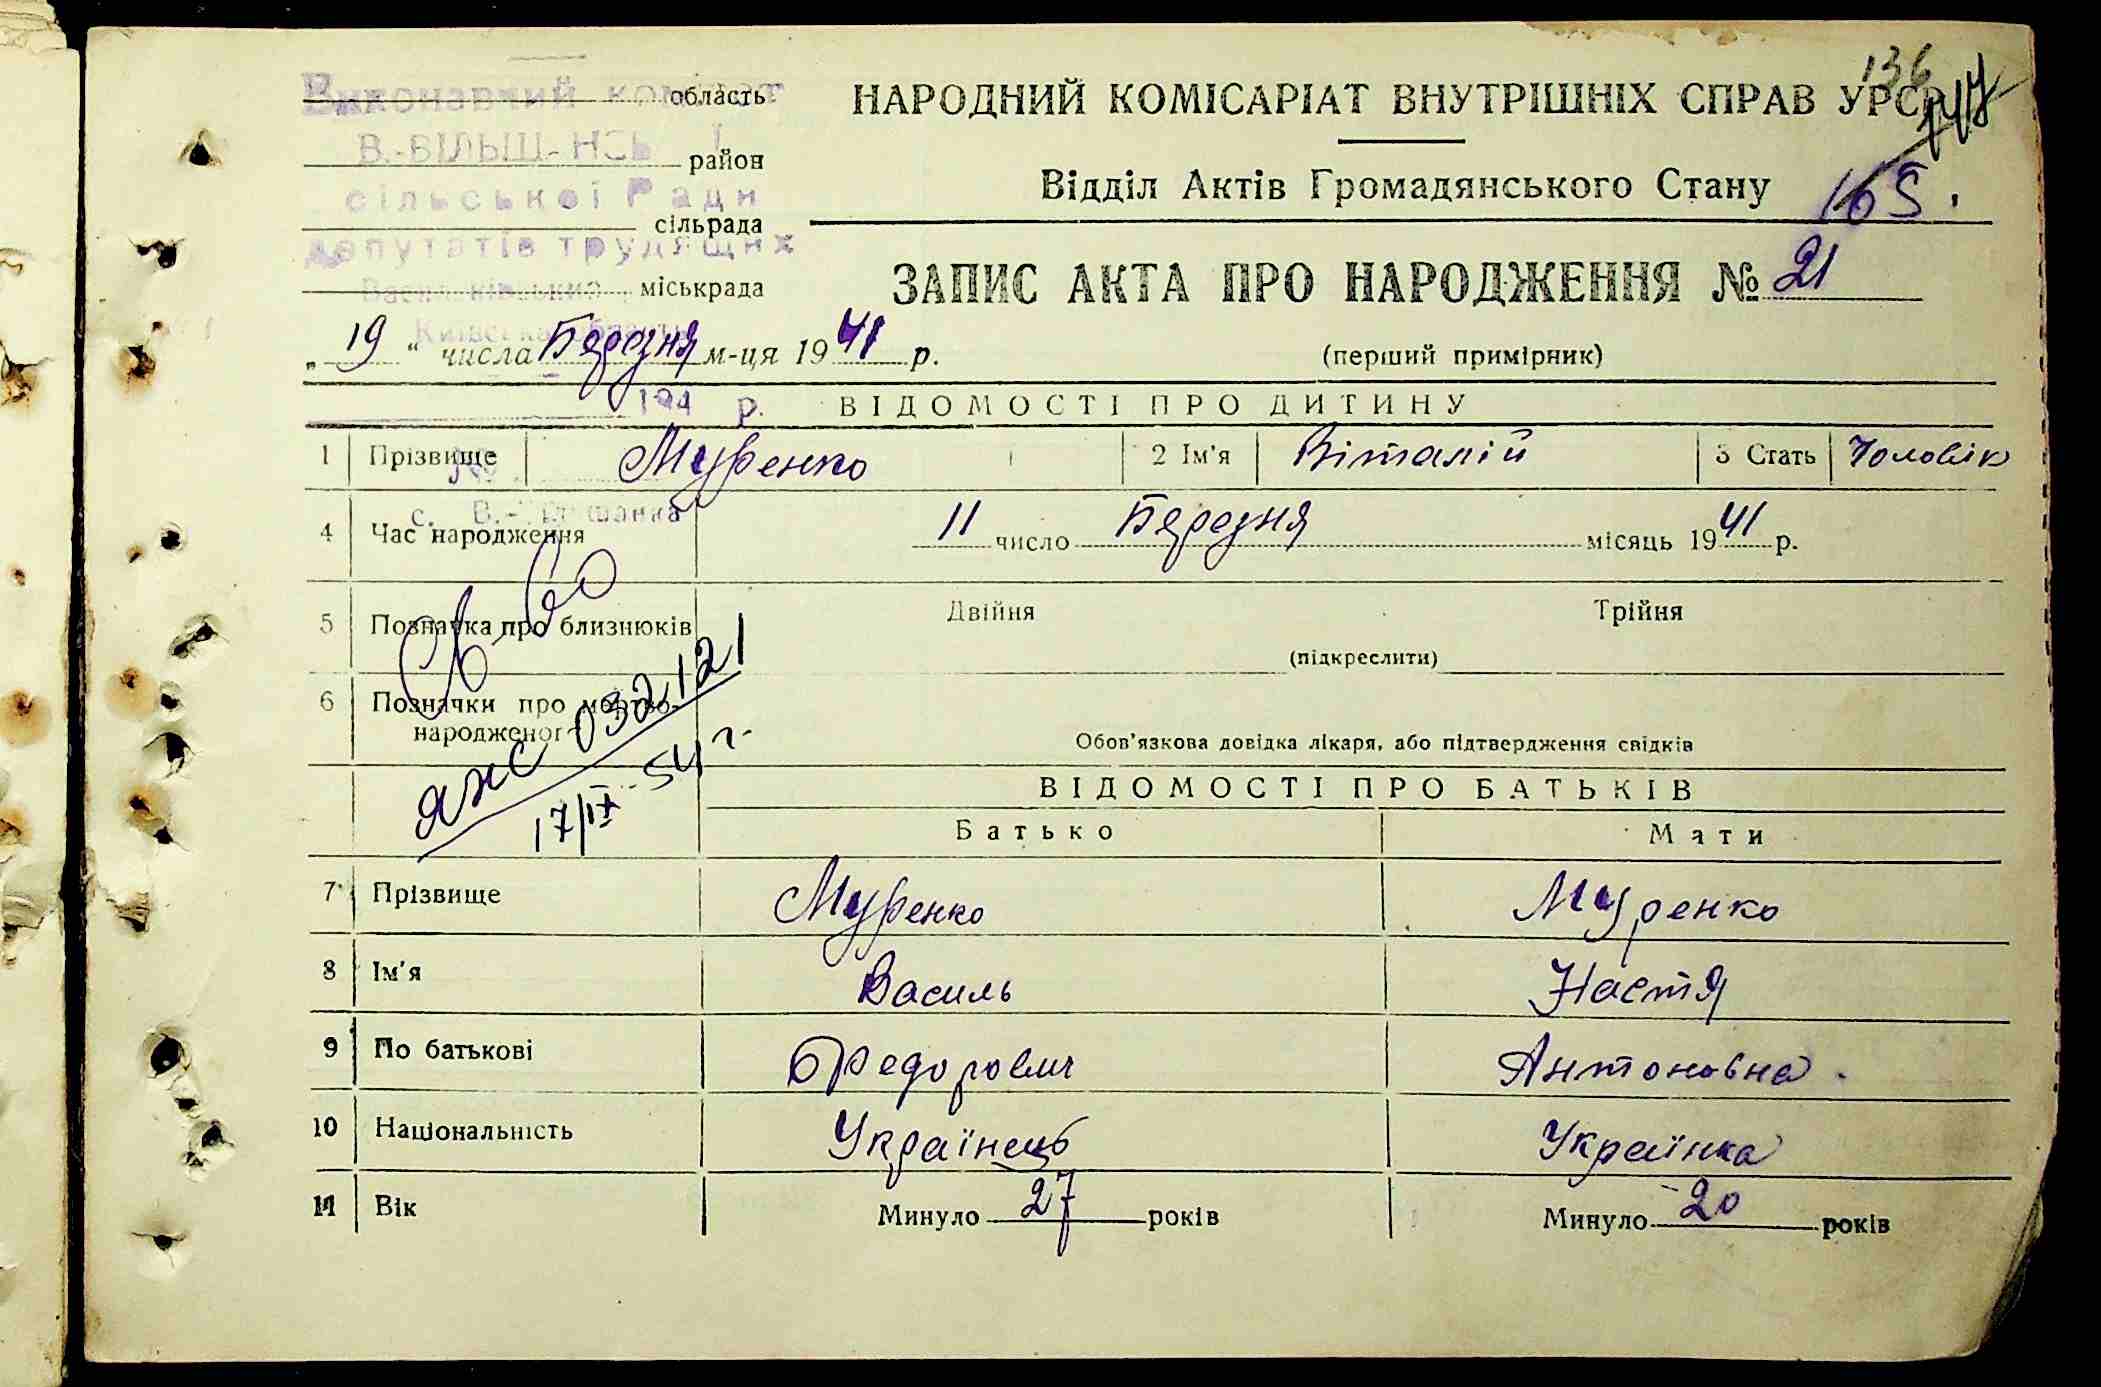 136
147
Виконавчий комітет
область
НАРОДНИЙ КОМІСАРІАТ ВНУТРІШНІХ СПРАВ УРСР
район
Відділ Актів Громадянського Стану
165.
сільської Ради
сільрада
депутатів трудящих
ЗАПИС АКТА ПРО НАРОДЖЕННЯ № 21
міськрада
„ 19 “ числа Бярезня м-ця 19 41 р.
(перший примірник)
194 р.
ВІДОМОСТІ ПРО ДИТИНУ
1 Прізвище Муренко 2 Ім'я Віталій 3 Стать Чоловік
с. В.-
4 Час народження 11 число Бярезня місяць 19 41 р.
5 Позначка про близнюків Двійня Трійня
(підкреслити)
Св-во
6 Позначки про мертво-
народженого
Обов'язкова довідка лікаря, або підтвердження свідків
032121
17/IX-54 г.
ВІДОМОСТІ ПРО БАТЬКІВ
Батько Мати
7 Прізвище Муренко Муренко
8 Ім'я Василь Настя
9 По батькові Федорович Антоновна.
10 Національність Українець Українка
11 Вік Минуло 27 років Минуло 20 років